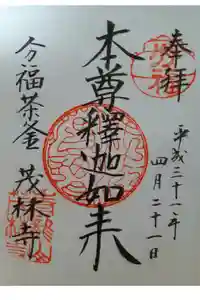 奉拝
平成三十一年
四月二十一日
本尊釋迦如来
分福茶釜
茂林寺